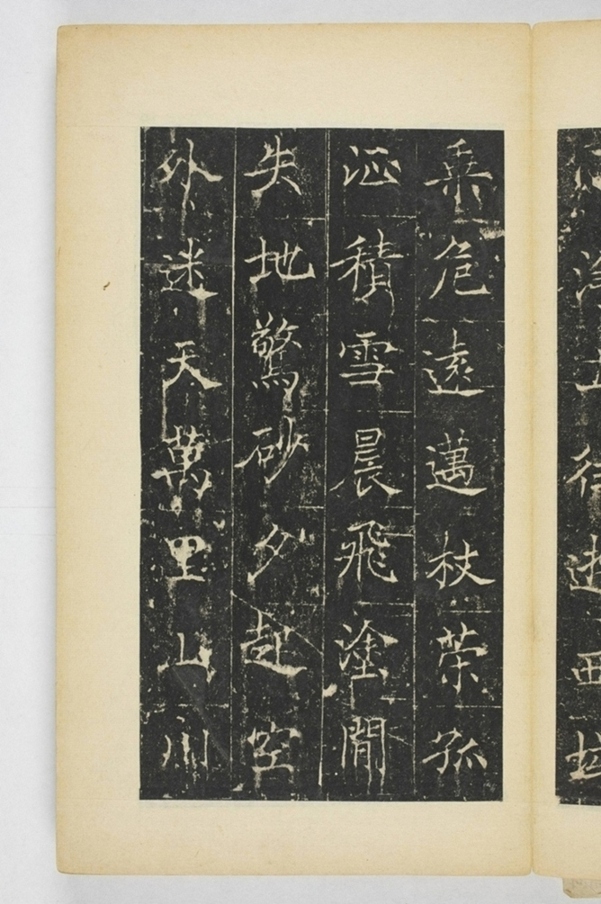 心淨土往遊西域
乘危遠邁杖策孤
征積雪晨飛塗閒
失地驚砂夕起空
外迷天萬里山川